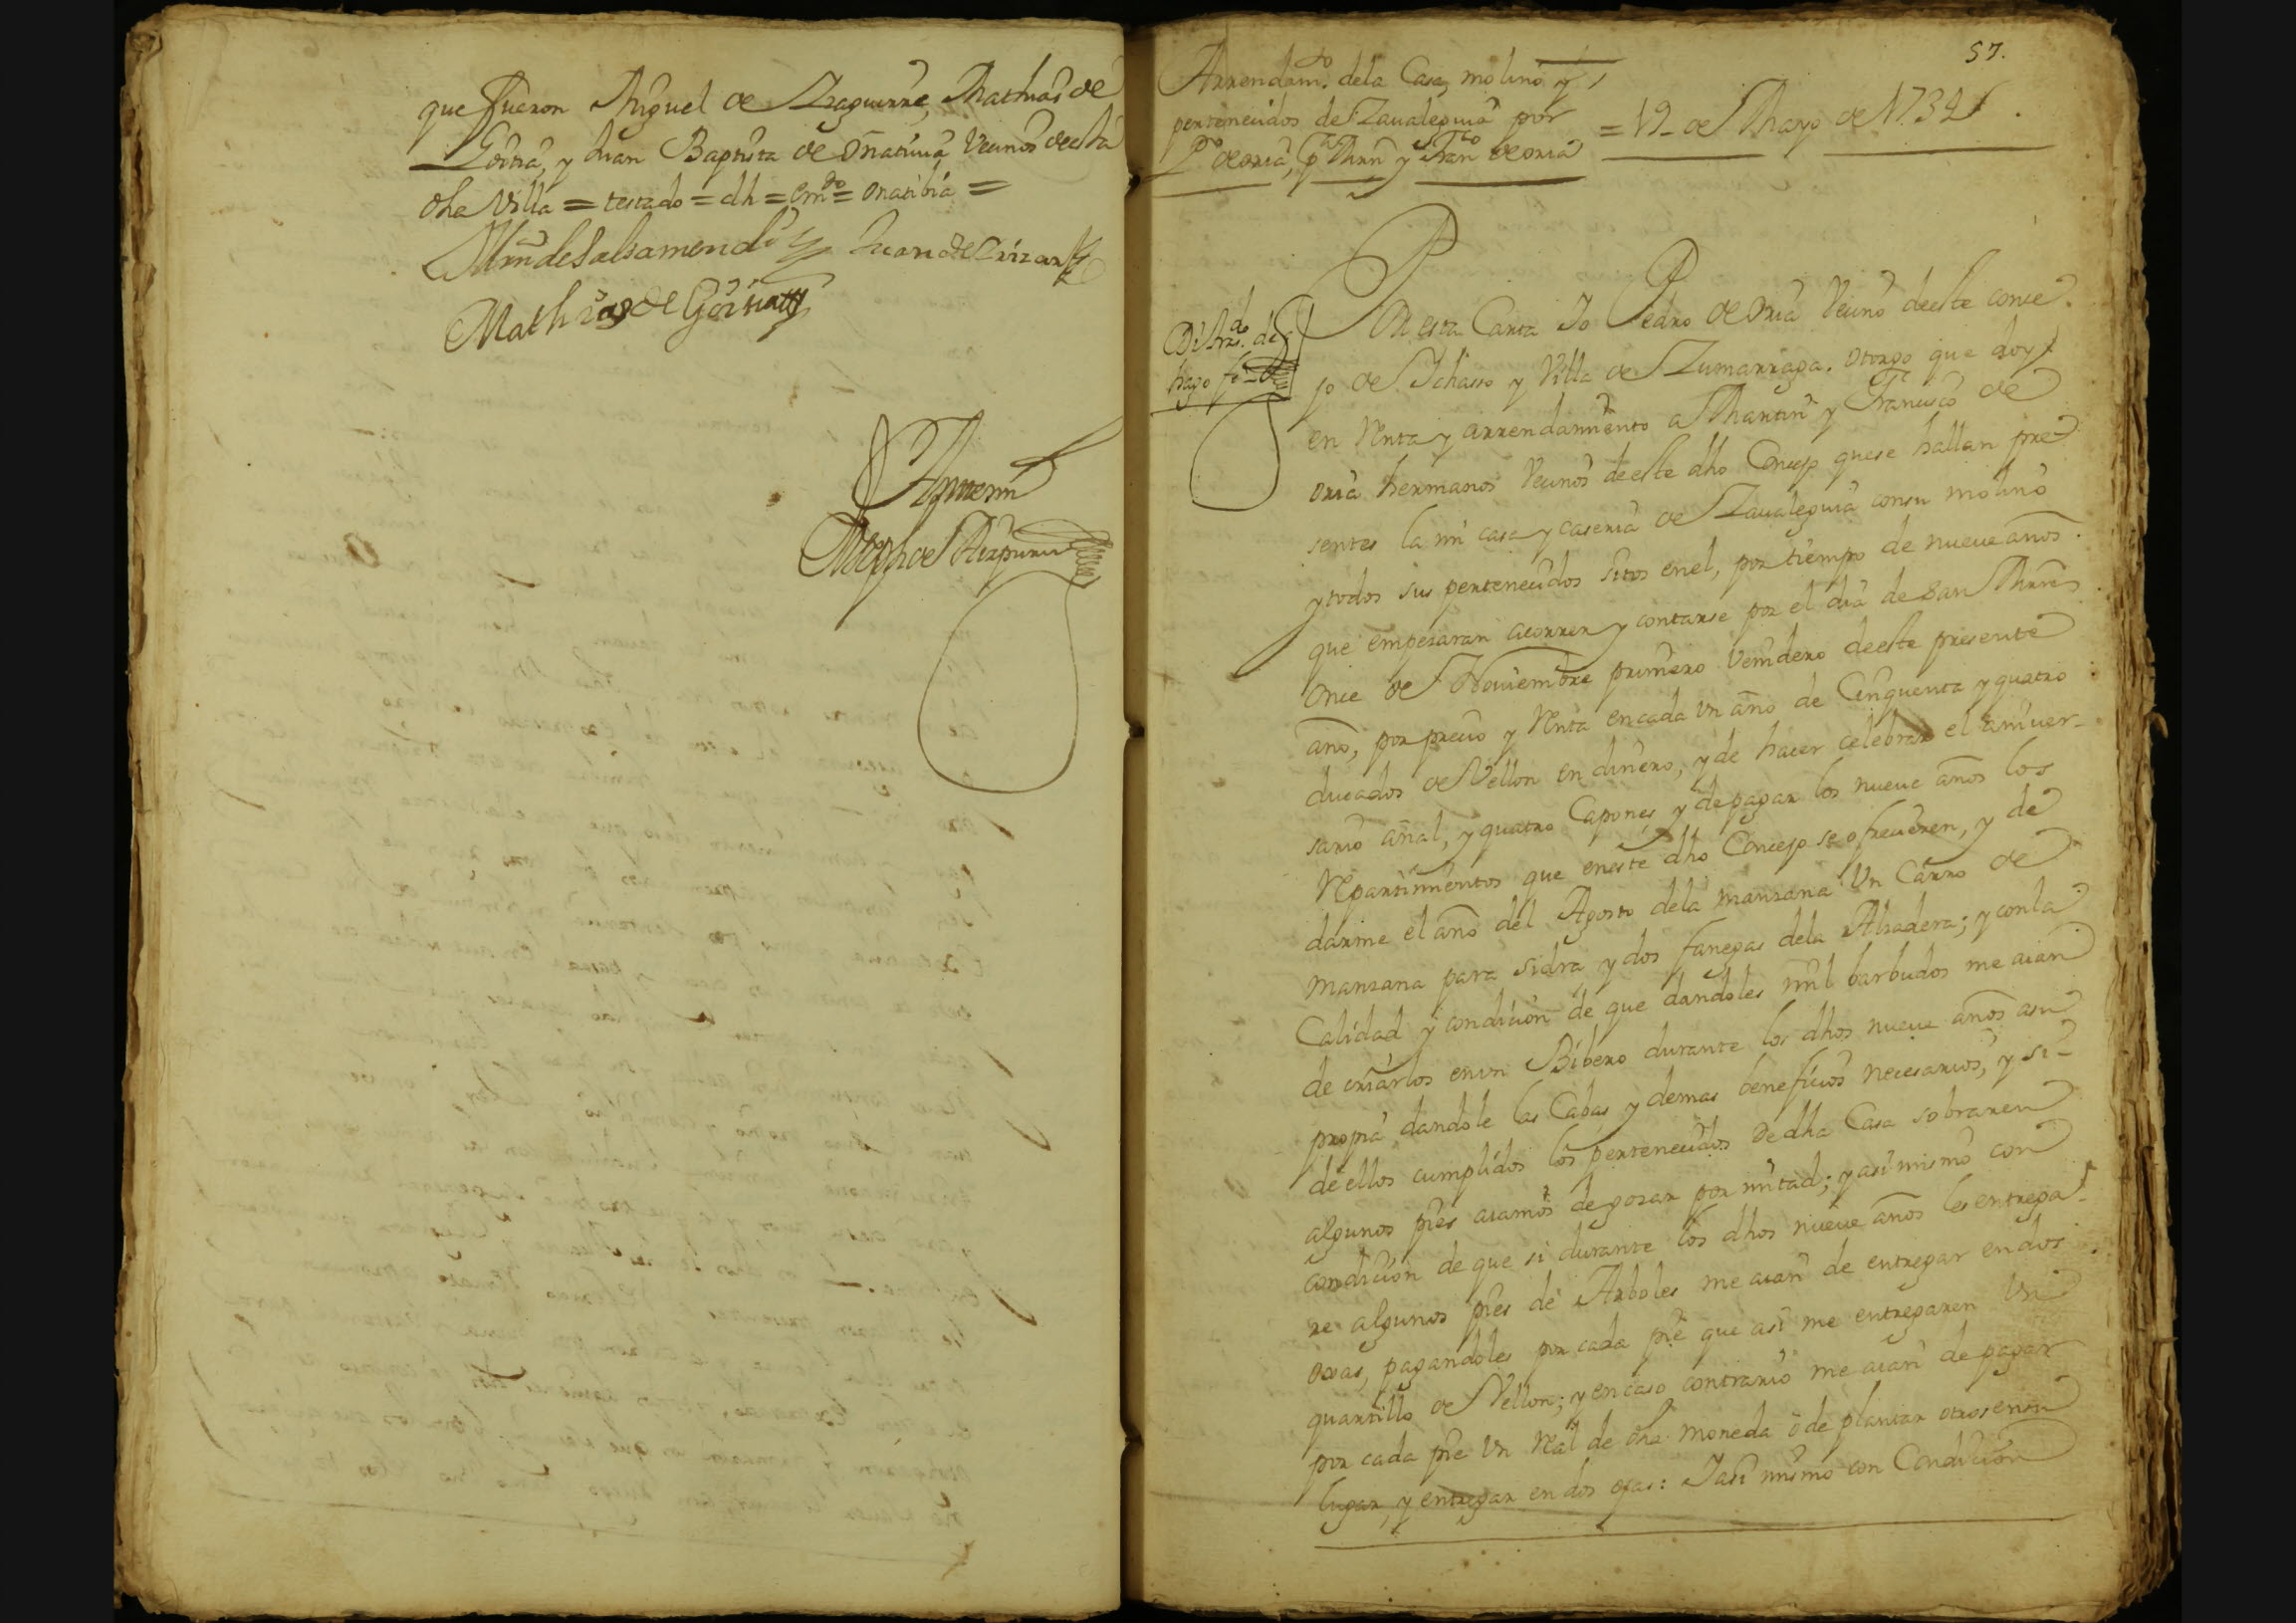 que fueron Miguel de Izaguirre, Mathias de
Goitia, y Juan Baptista de Oñatiuia Vecinos de esta
dha Villa = testado = dh = em.do = onatibia =
Mrn de Salsamendi Juan de Lizar
Mathias de Goitia
Antemi
Joseph de Aizpuru
57.
Arrendam.to dela Casa, molino y
pertenecidos de Zaualeguia por
P.o de oria, p.a Mrn y Fran.co de oria
= 19 de Mayo de 1734
Di tras.do de
hago fe
En esta Carta Io Pedro de Oria Vecino de este conce
jo de Ichasso y Villa de Zumarraga. Otorgo que doy
en Renta y arrendamiento a Martin y Francisco de
oria hermanos Vecinos de este dho Concejo que se hallan pre
sentes la mi casa y caseria de Zaualeguia con su molino
y todos sus pertenecidos sitos en el, por tiempo de nueue años
que empesaran acorrer y contarse por el dia de San Mrn
Once de Nouiembre primero Venidero de este presente
año, por precio y Renta en cada Vn año de Cinquenta y quatro
ducados de Vellon en dinero, y de hacer celebrar el aniuer-
sario añal, y quatro Capones y de pagar los nueue años los
Repartimientos que en este dho Concejo se ofrecieren, y de
darme el año del Agosto dela manzana Vn Carro de
manzana para sidra, y dos fanegas dela Alsadera; y con la
Calidad y condicion de que dandoles mil barbudos me aian
de criarlos en vn Bibero durante los dhos nueue años asu
propia dandole las Cabas y demas beneficios necesarios, y si-
de ellos cumplidos los pertenecidos de dha Casa sobraren
algunos pies aiamos de gozar por mitad; y asi mismo con
condicion de que si durante los dhos nueue años les entrega-
re algunos pies de Arboles me aian de entregar en dos
oxas, pagandoles por cada pie que asi me entregaren Vn
quartillo de Vellon; y en caso contrario me aian de pagar
por cada pie Vn Real de dha moneda ô de plantar otros en su
lugar, y entregar en dos ojas: Iasi mismo con Condicion